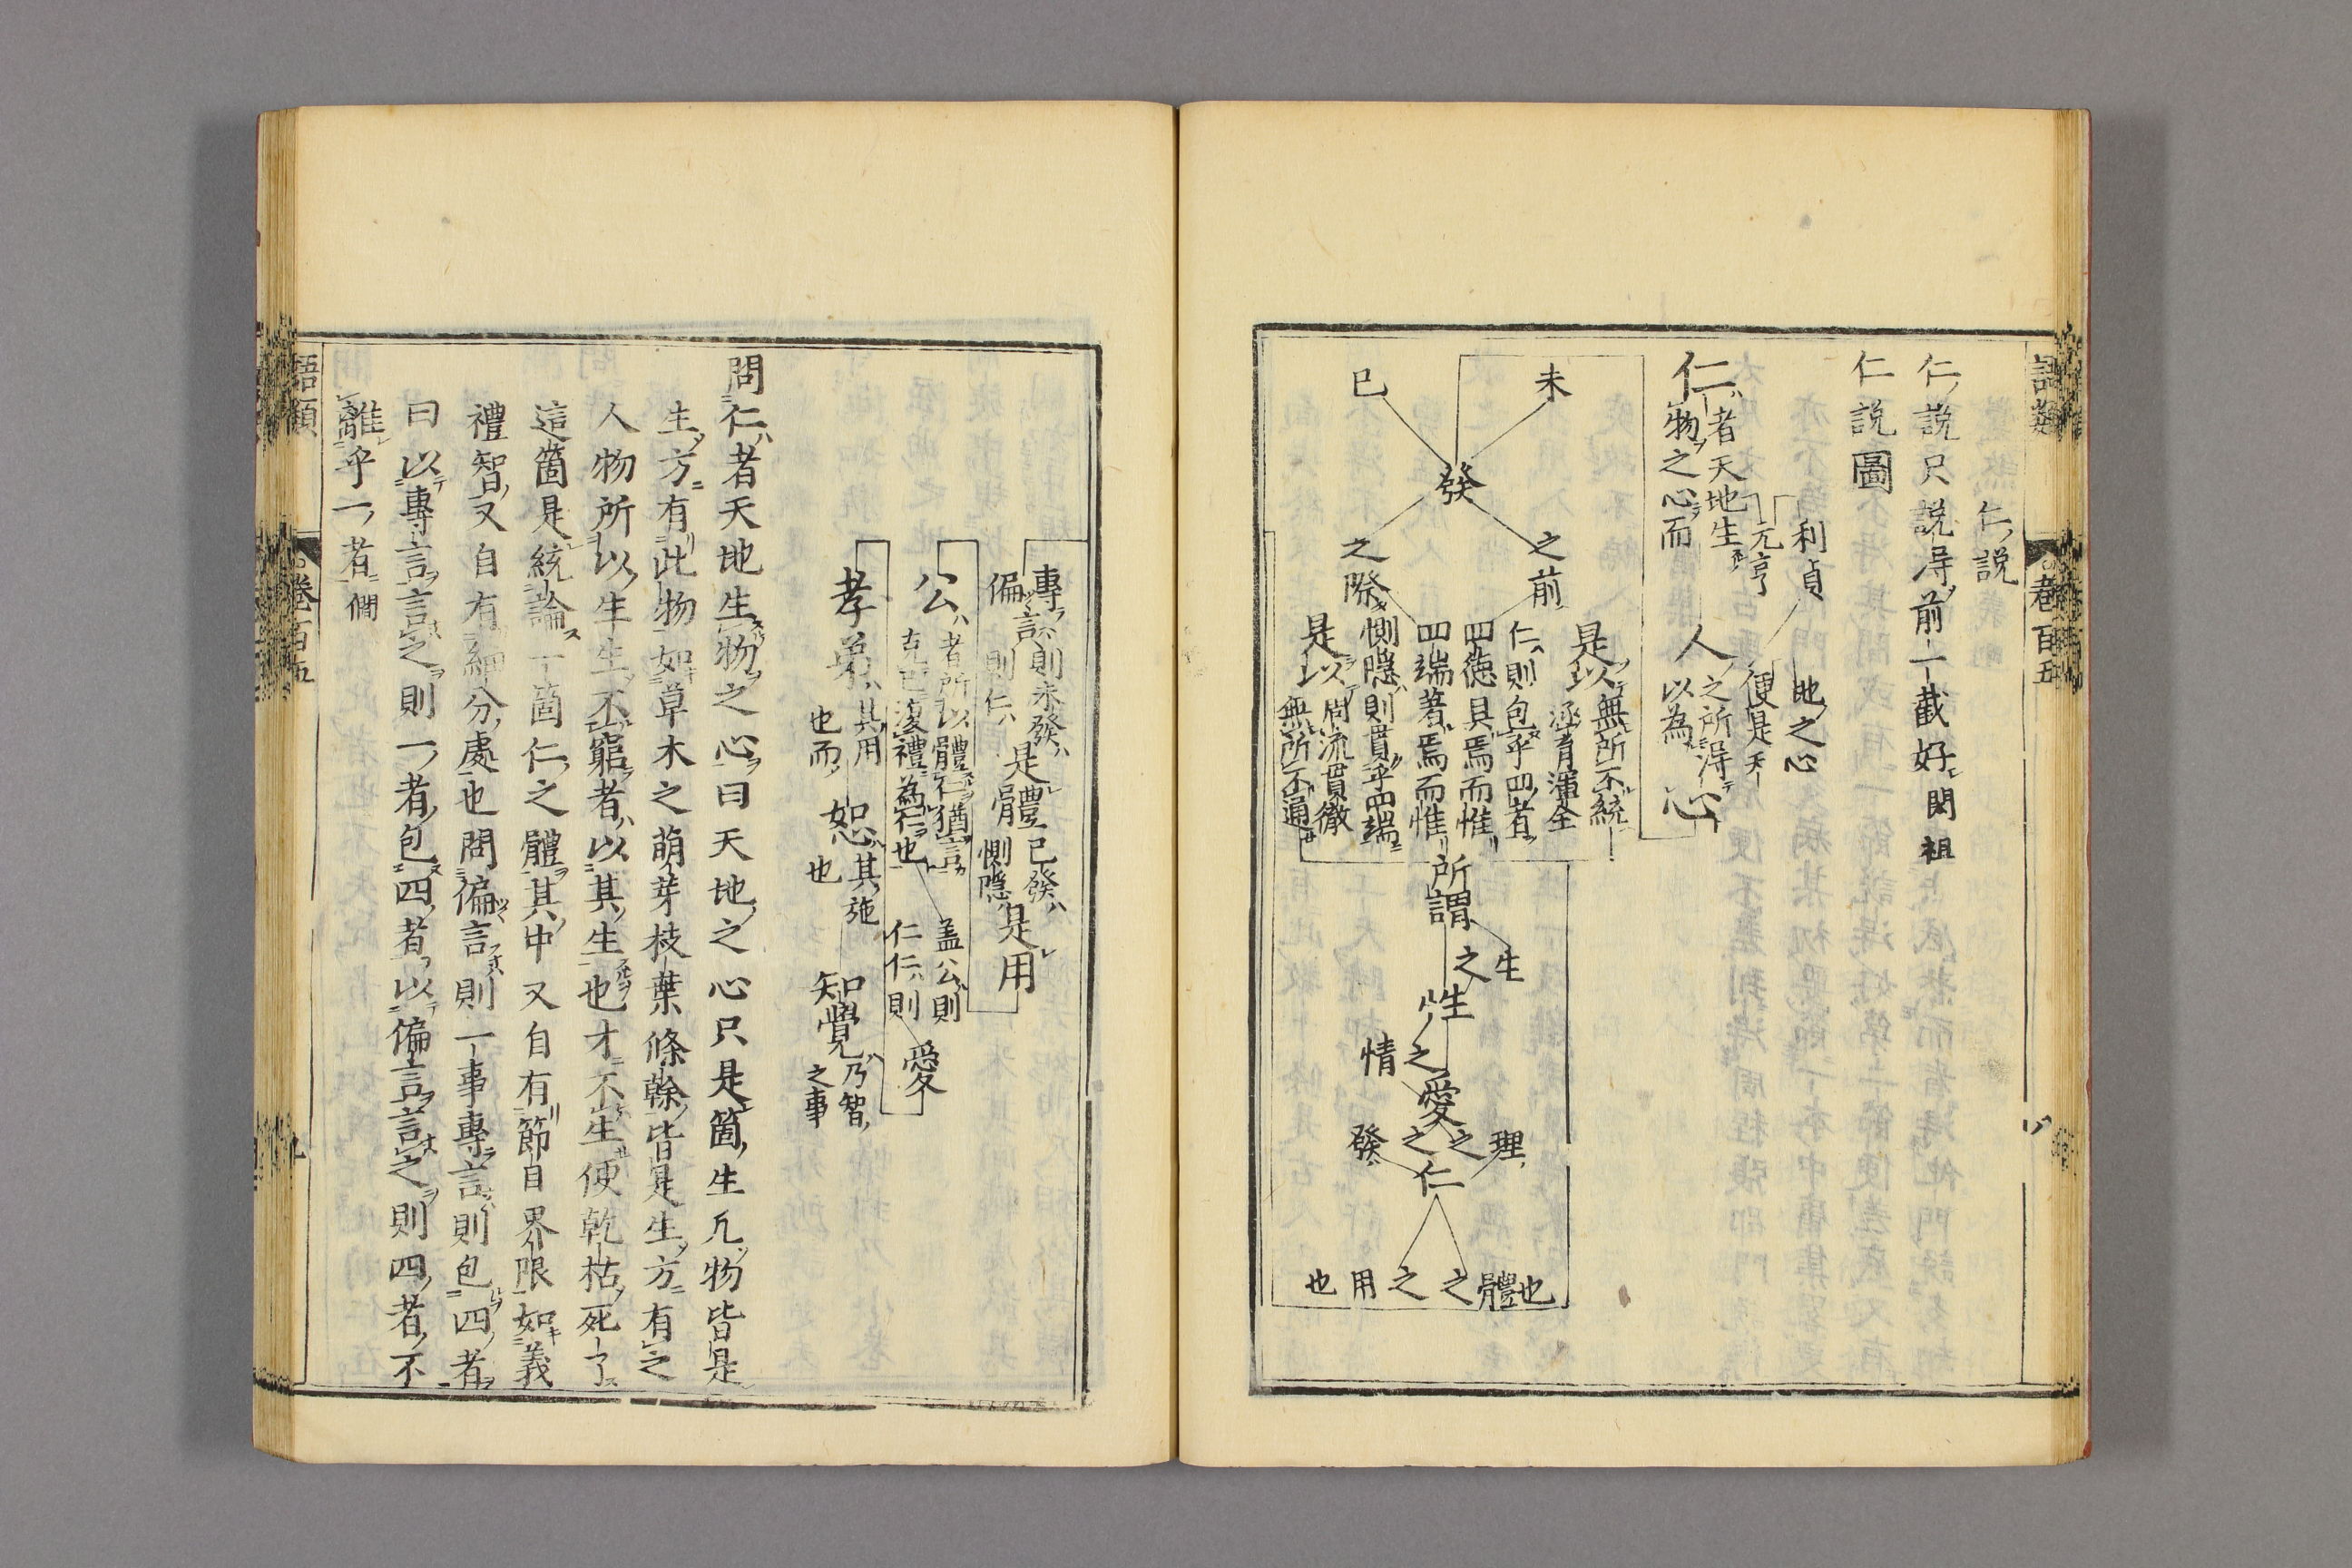 語類
卷百五
仁説
仁説只説得前一截好閎祖
仁説圖
利貞
元亨
地之心
便是天
仁者天地生
物之心而
人之所得
以為
心
未
已
發
之前
之際
是以無所不統
涵育渾全
仁則包乎四者
四德具焉而惟
四端著焉而惟
惻隱則貫乎四端
是以周流貫徹
無所不通
所謂
生
之
性
之
情
愛
之理
之發
仁
之體也
之用也
專言則未發是體已發是用
偏言則仁惻隱
公者所以體仁猶言
克己復禮為仁也
蓋公則
仁仁則
愛
孝弟其用
也而
恕其施
也
知覺乃智
之事
問仁者天地生物之心曰天地之心只是箇生凡物皆是
生方有此物如草木之萌芽枝葉條幹皆是生方有之
人物所以生生不窮者以其生也才不生便乾枯死了
這箇是統論一箇仁之體其中又自有節目界限如義
禮智又自有細分處也問偏言則一事專言則包四者
曰以專言言之則一者包四者以偏言言之則四者不
離乎一者僩
語類
卷百五
九